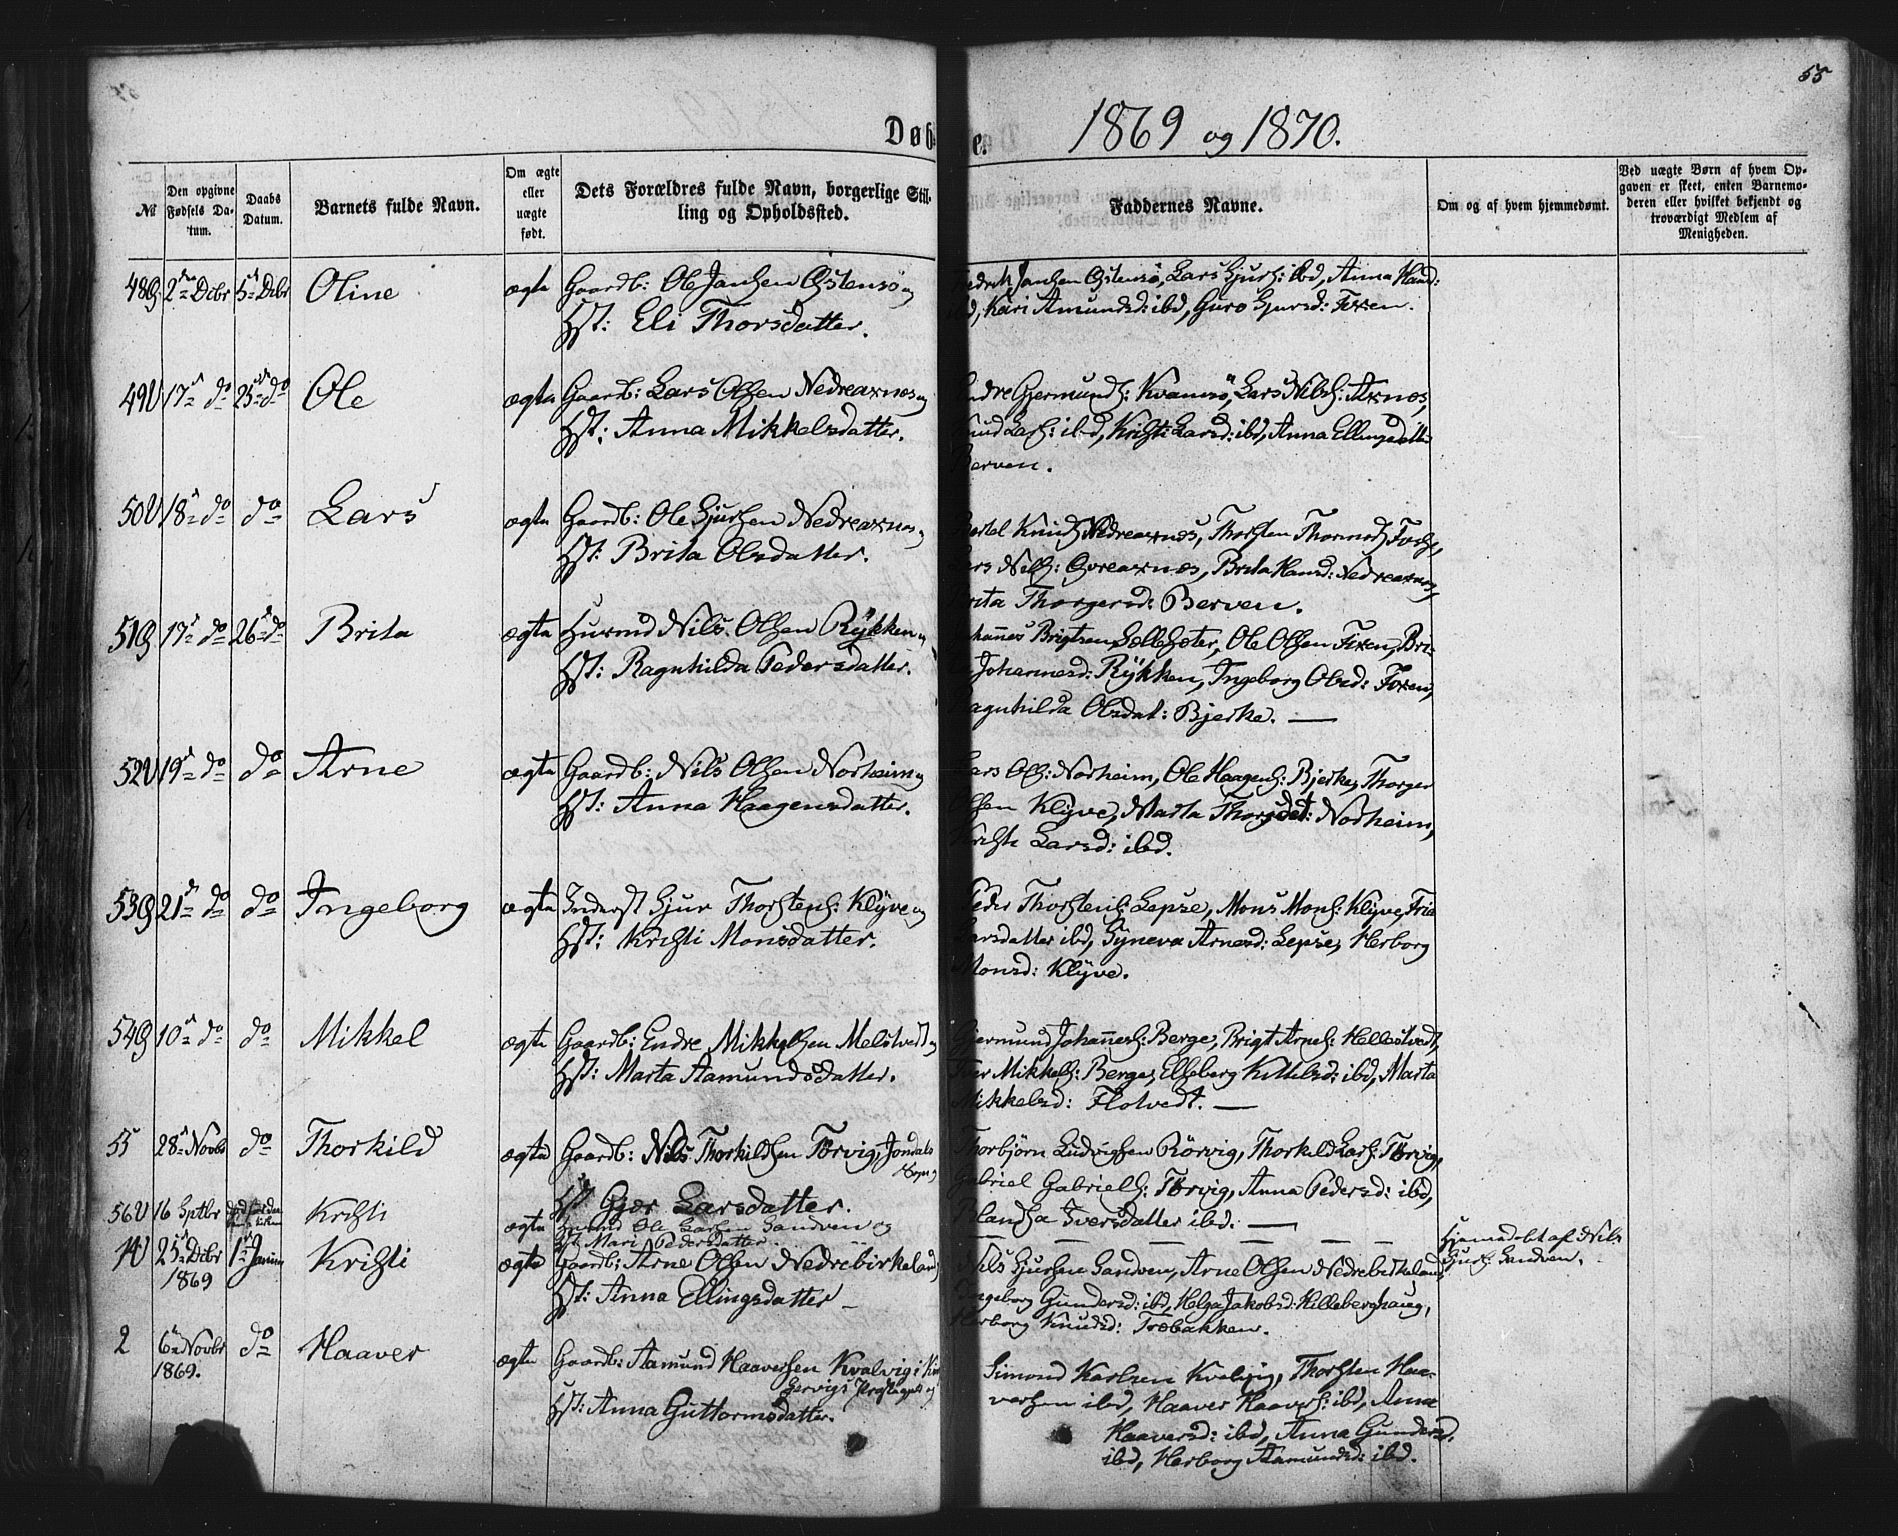 55
Døb e. 1869 og 1870.
No
Den opgivne Fødsels Datum.
Daabs Datum.
Barnets fulde Navn.
Om ægte eller uægte født.
Dets Forældres fulde Navn, borgerlige Stilling og Opholdssted.
Faddernes Navne.
Om og af hvem hjemmedøbt.
Ved uægte Børn af hvem Opgaven er skeet, enten Barnemoderen eller hvilket bekjendt og troværdigt Medlem af Menigheden.
48 2 Debr 5 Debr Oline ægte Gaardb: Ole Jansen Østensø og
Hst: Eli Thorsdatter.
Jansen Østensø, Lars Sjurs: ibd, Anna
Kari Amundsd: ibd, Guro Sjursd: Fixen.
49V 17 do 25 do Ole ægte Gaardb: Lars Olsen Nedreaxnes og
Hst: Anna Mikkelsdatter.
Gjermunds: Kvamsö, Lars Nils: Axnes,
Lars: ibd, Kristi Larsd: ibd, Anna Ellingsdtt:
Berven.
50V 18 do do Lars ægte Gaardb: Ole Sjursen Nedreaxnes og
Hst: Brita Olsdatter.
Knuds Nedreaxnes, Thorsten Thormods
Nils: Øvreaxnes, Brita Hansd: Nedreaxnes,
Thorgersd: Berven.
51 17 do 26 do Brita ægte Husmd Nils Olsen Rykken og
Hst: Ragnhilda Pedersdatter.
Johannes Brigtsen Sollesæter, Ole Olsen Fixen, Bri-
Johannesd: Rykken, Ingeborg Olsd: Foxen,
Ragnhilda Olsdat: Bjerke. —
52V 19 do do Arne ægte Gaardb: Nils Olsen Norheim og
Hst: Anna Haagensdatter.
Lars Ols: Norheim, Ole Haagens: Bjerke, Thorger
Olsen Klyve, Marta Thorsdat: Norheim,
Kristi Larsd: ibd.
53 21 do do Ingeborg ægte Inderst Sjur Thorstens: Klyve og
Hst: Kristi Monsdatter.
Peder Thorstens: Lepse, Mons Mons: Klyve,
Larsdatter ibd, Syneva Arnesd: Lepse, Herborg
Monsd: Klyve.
54 10 do do Mikkel ægte Gaardb: Endre Mikkelsen Melstvedt og
Hst: Marta Aamundsdatter.
Gjermund Johannes: Berge, Brigt Arnes: Hellestvedt,
Iver Mikkels: Berge, Elseberg Kittelsd: ibd, Marta
Mikkelsd: Flotvedt. —
55 28 Novbr do Thorkild ægte Gaardb: Nils Thorkildsen Törvig, Jondals
Hst Gjør Larsdatter.
Thorbjörn Ludvigsen Rörvig, Thorkild Lars: Törvig,
Gabriel Gabriels: Törvig, Anna Pedersd: ibd,
Iversdatter ibd. —
56V 16 Sptbr Kristi ægte Husmd Ole Larsen Sandven og
Hst Mari Pedersdatter.
Hjemmedøbt af Nils
Sjurs: Sandven.
1V 25 Debr 1869 1 Januar Kristi ægte Gaardb: Arne Olsen Nedrebirkeland
Hst: Anna Ellingsdatter
Nils Sjursen Sandven, Arne Olsen Nedrebirkeland,
Ingeborg Gundersd: ibd, Helga Jakobsd: Hilleberghaug,
Herborg Knudsd: Træbakken.
2 6 Novbr 1869. do Haaver ægte Gaardb: Aamund Haaversen Kvalvig i
Præstegjeld og
Hst: Anna Guttormsdatter.
Simond Karlsen Kvalvig, Thorsten Haa-
versen ibd, Haaver Haavers: ibd, Anna
Haaversd: ibd, Anna Gundersd.
ibd, Herborg Aamundsd: ibd.